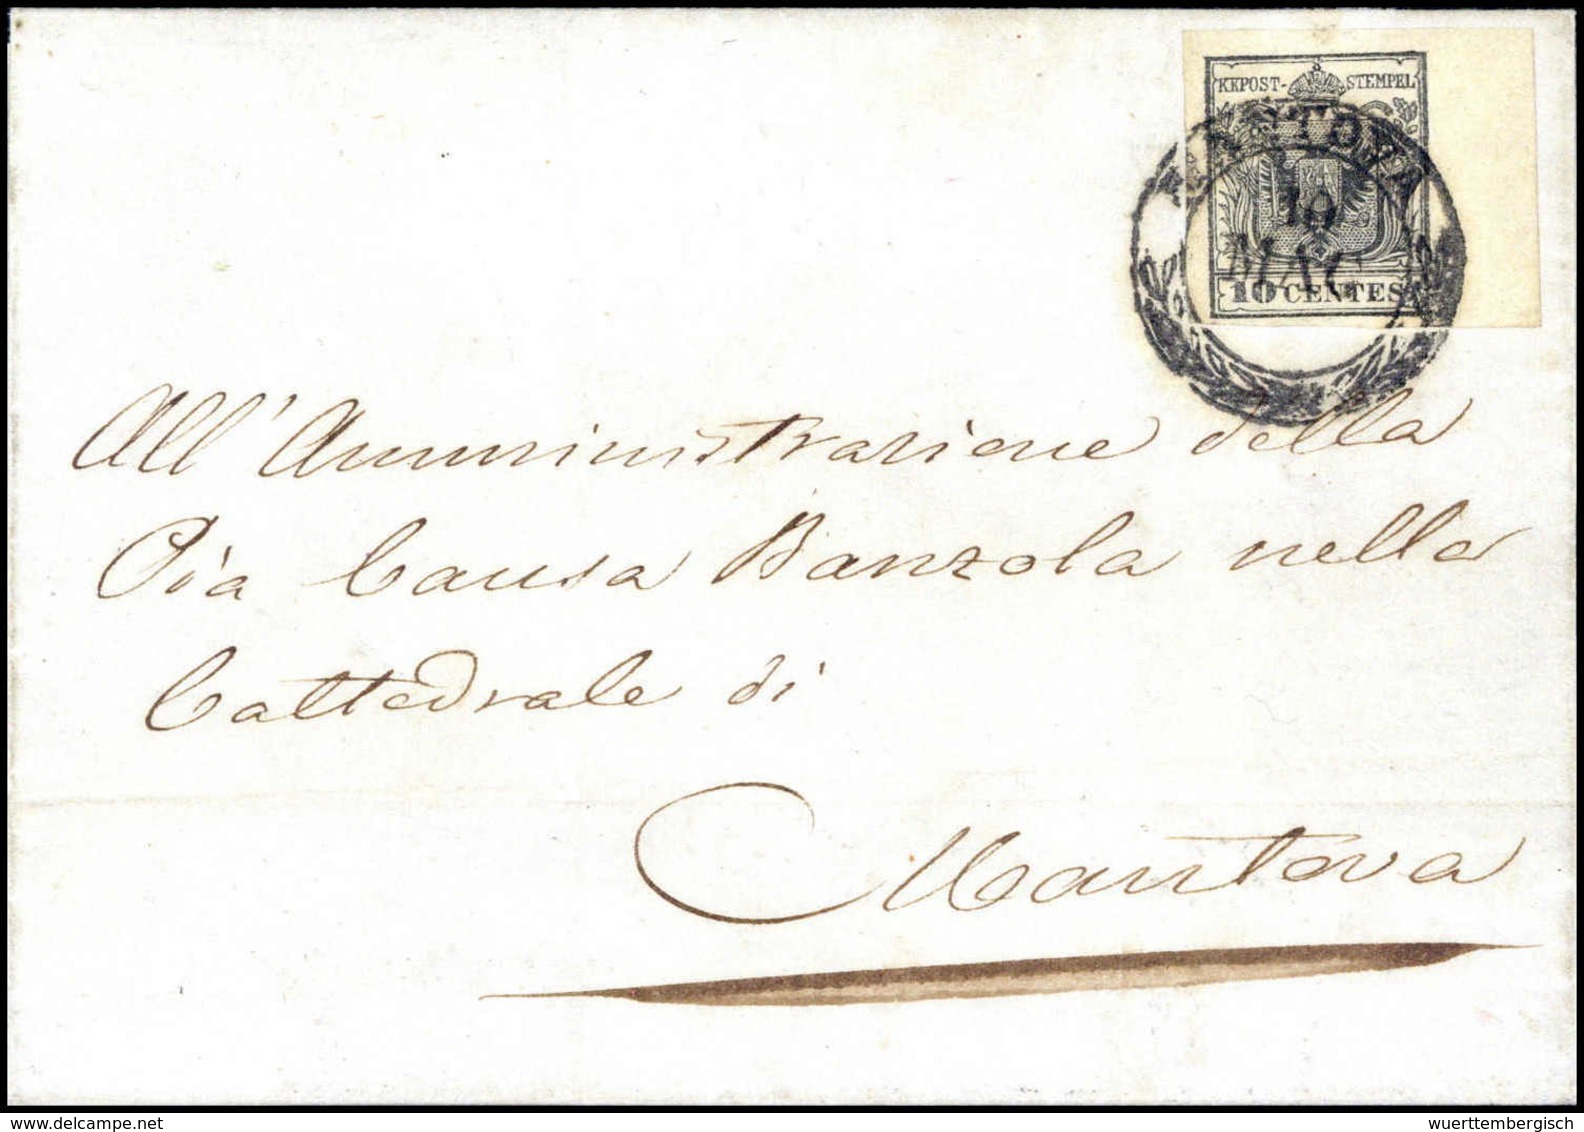 KKPOST-STEMPEL
MANTOVA
10
MAG
10 CENTES
All'Amministrazione della
Pia Causa Banzola nella
Cattedrale di
Mantova
delcampe.net
wuerttembergisch